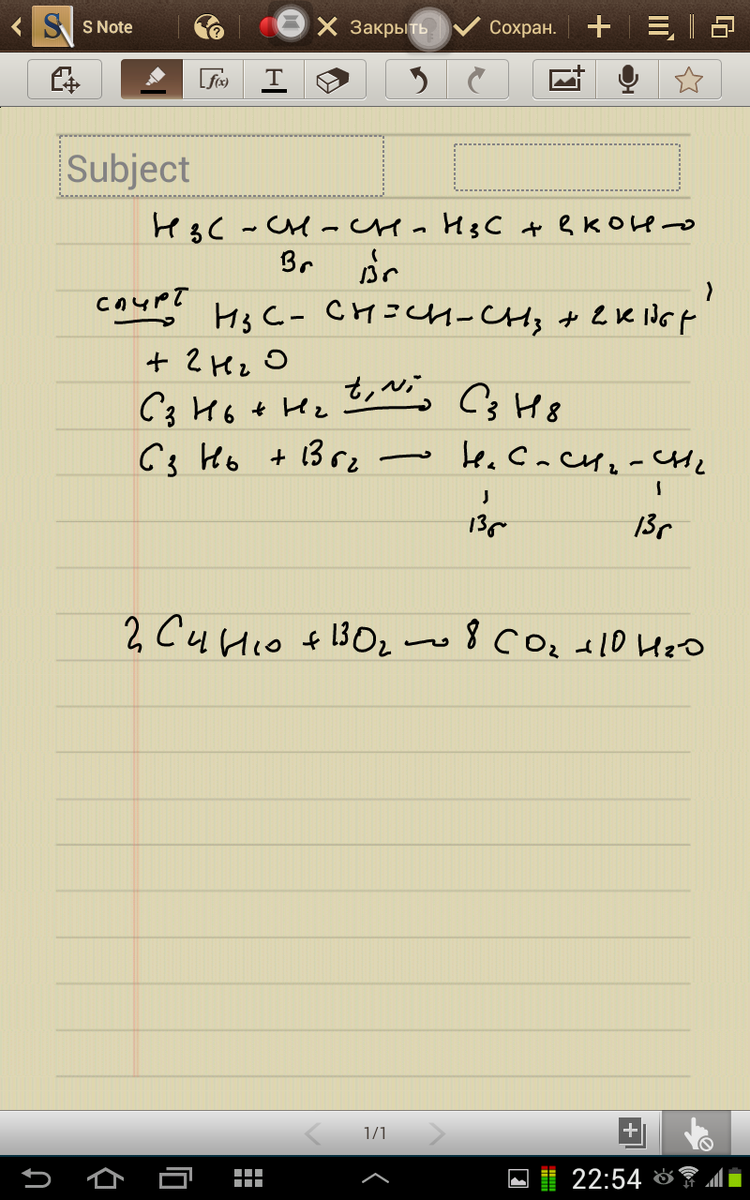 S Note
Закрыть
Сохран.
f(x)
T
Subject
H₃C - CH - CH - H₃C + 2KOH →
Br Br
спирт → H₃C - CH = CH - CH₃ + 2KBr +
+ 2H₂O
C₃H₆ + H₂ t, Ni → C₃H₈
C₃H₆ + Br₂ → H₂C - CH₂ - CH₂
Br Br
2C₄H₁₀ + 13O₂ → 8CO₂ + 10H₂O
1/1
22:54